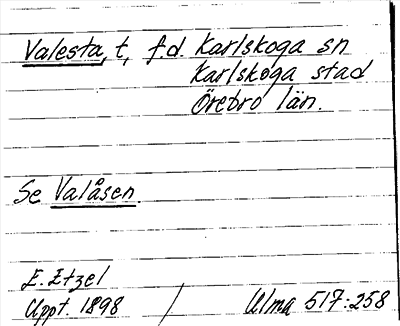 Valesta, t, f.d. Karlskoga sn
Karlskoga stad
Örebro län.
Se Valåsen.
E. Etzel
Uppt. 1898 / Ulma 517:258